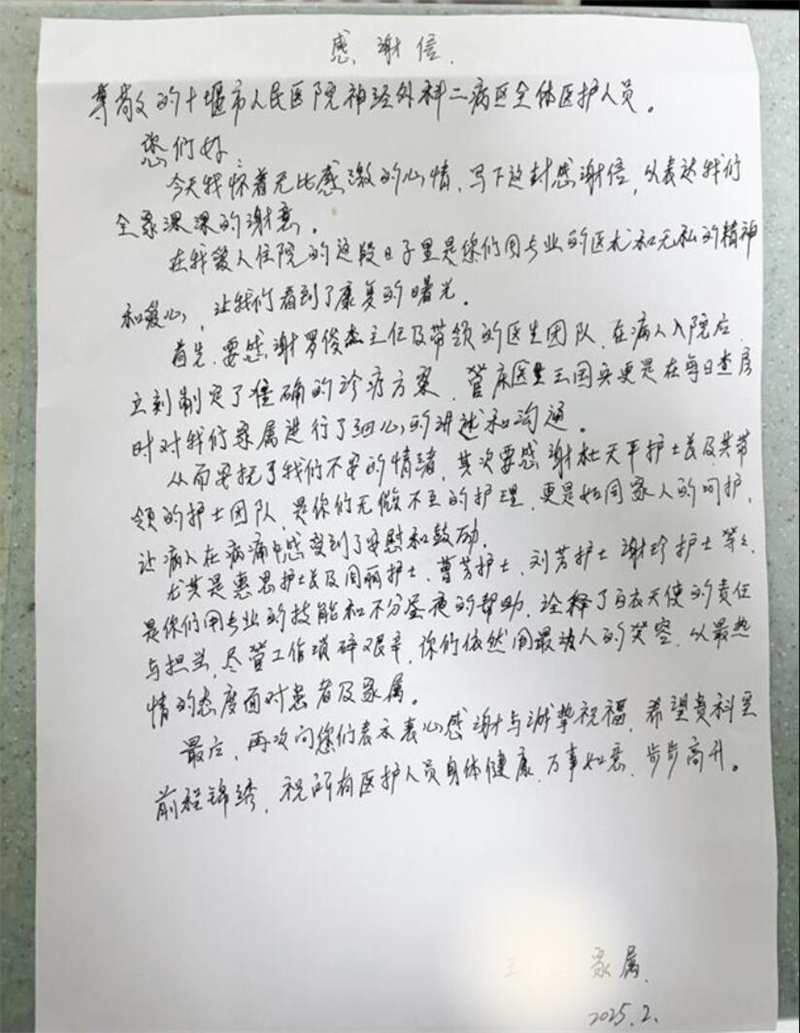 感谢信.
尊敬的十堰市人民医院神经外科二病区全体医护人员。
您们好:
今天我怀着无比感激的心情，写下这封感谢信，以表达我们
全家深深的谢意。
在我家人住院的这段日子里是你们用专业的医术和无私的精神
和爱心，让我们看到了康复的曙光。
首先，要感谢罗俊杰主任及带领的医生团队，在病人入院后，
立刻制定了准确的诊疗方案，管床医生王国实更是在每日查房
时对我们家属进行了细心的讲述和沟通。
从而安抚了我们不安的情绪，其次要感谢杜天平护士长及其带
领的护士团队，是你们无微不至的护理，更是如同家人的呵护，
让病人在病痛中感受到了安慰和鼓励。
尤其是惠思护士长及闫丽护士，曹芳护士，刘芳护士 谢珍护士等等，
是你们用专业的技能和不分昼夜的帮助，诠释了白衣天使的责任
与担当，尽管工作琐碎艰辛，你们依然用最诚人的笑容，以最热
情的态度面对患者及家属。
最后，再次向您们表示衷心感谢与诚挚祝福，希望贵科室
前程锦绣，祝所有医护人员身体健康，万事如意，步步高升。
家属.
2025.2.